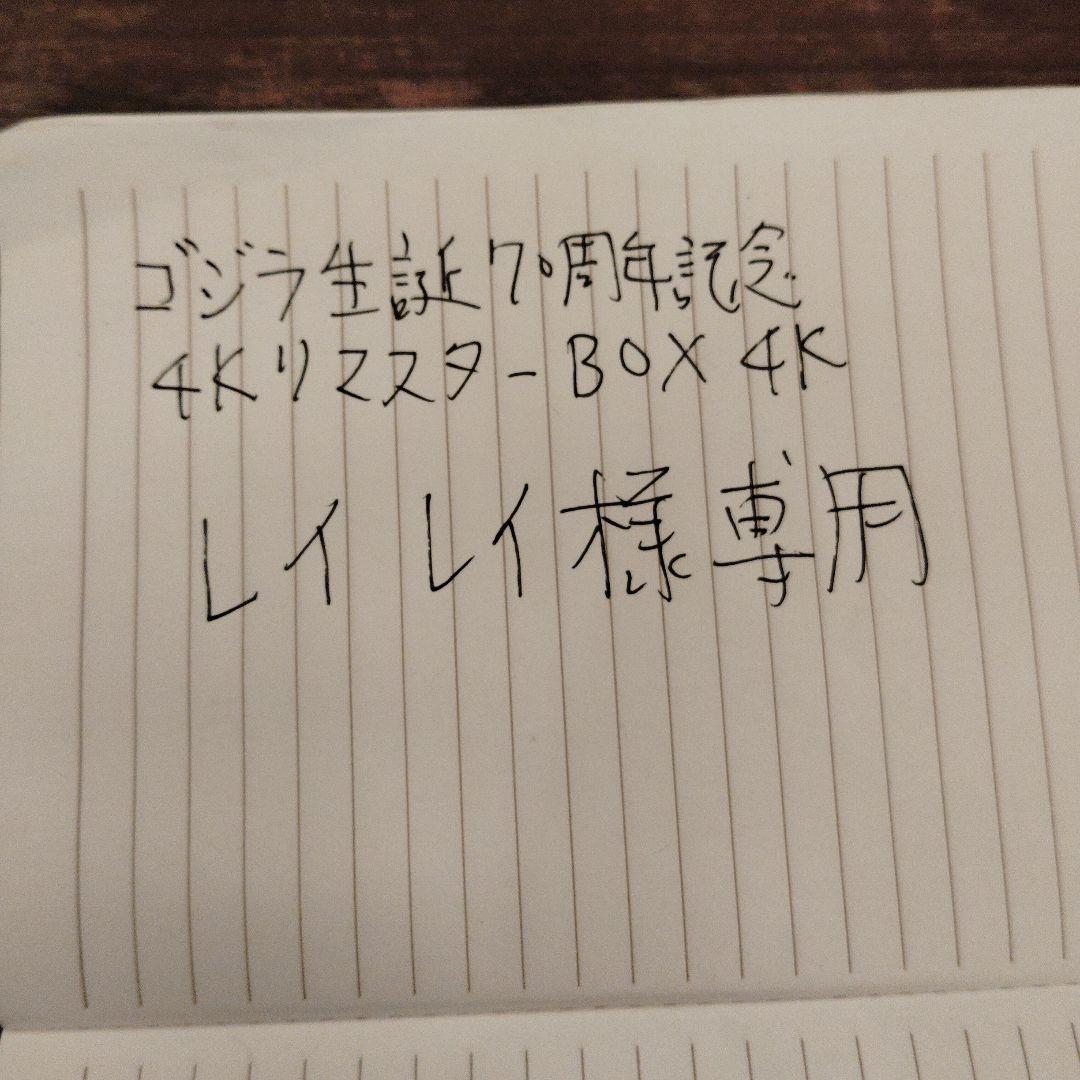 ゴジラ生誕70周年記念
4KリマスターBOX 4K
レイレイ様専用